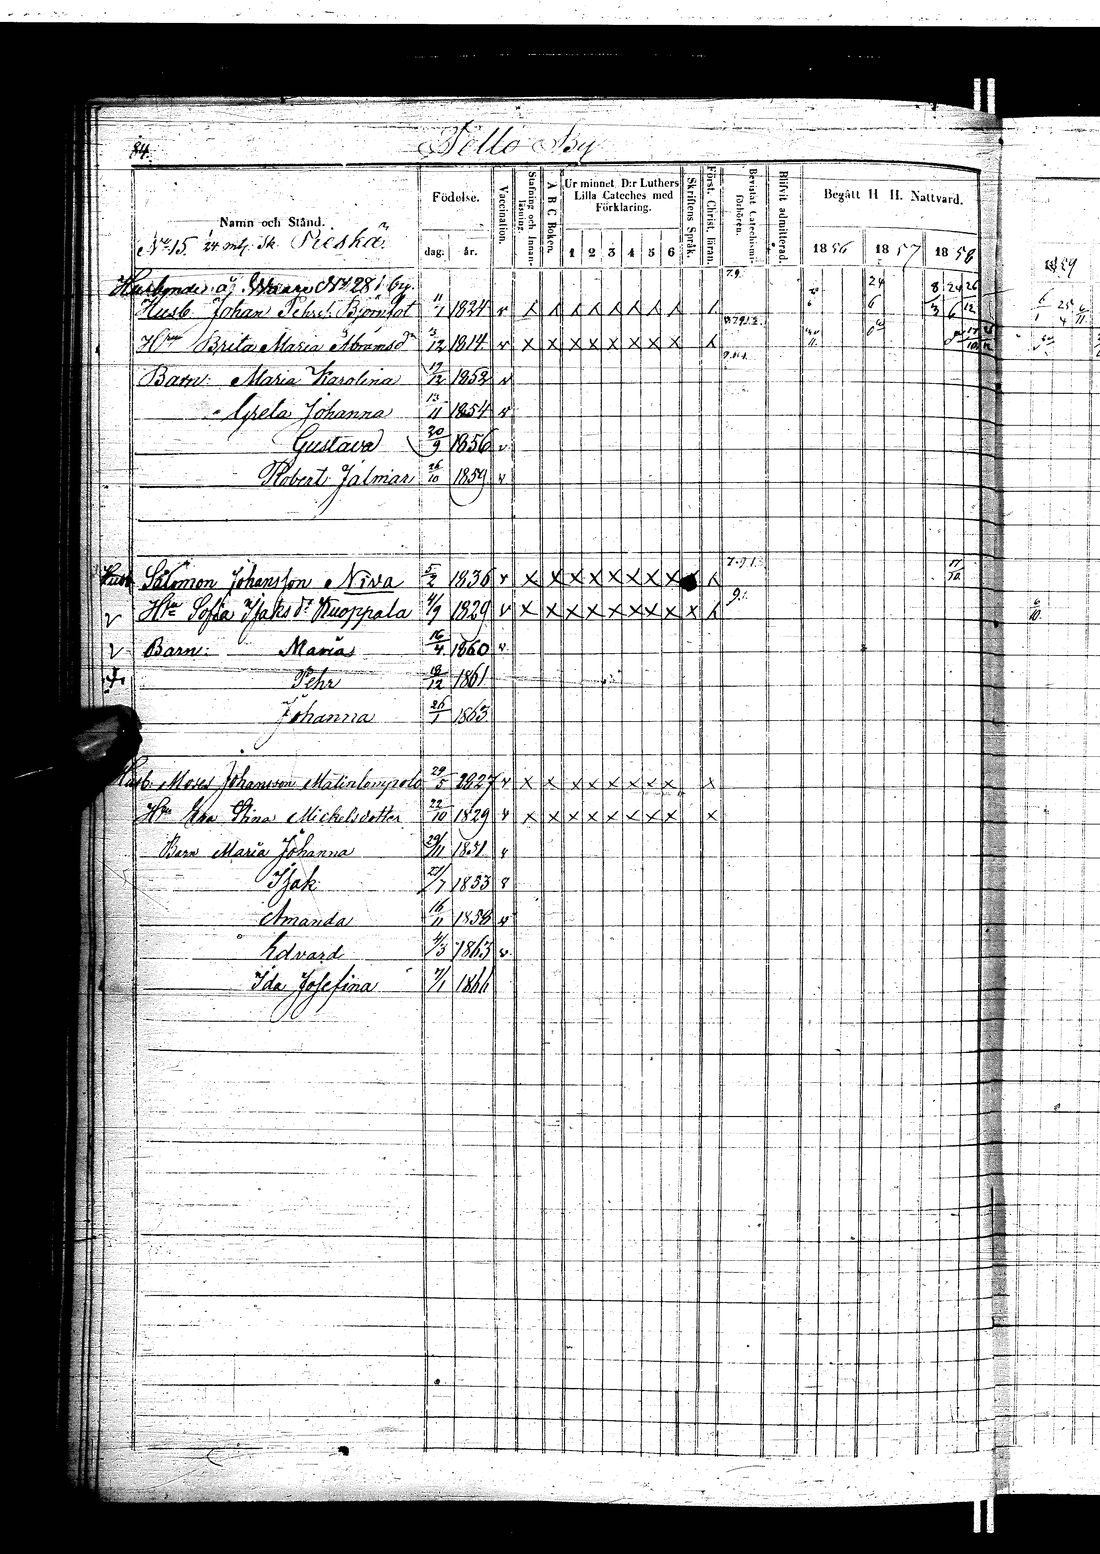 84.
Tollo By
Namn och Stånd.
Födelse.
Vaccination.
Stafning och Innan-läsning.
A B C Boken.
Ur minnet D:r Luthers
Lilla Cateches med
Förklaring.
Skriftens Språk.
Först. Christ. läran.
Bevistat Catechismi-förhören.
Blifvit admitterad.
Begått H H. Nattvard.
dag: år. 1 2 3 4 5 6 1856 1857 1858
1859
No 15. 24 mtl. Sk. Pieskä
Husbonde af No 28 i by.
Husb. Johan Pehrs. Björnfot 11/1 1824 v
Hru Brita Maria Abramsdr 3/12 1814 v x x x x x x x x
Barn: Maria Karolina 19/12 1852 v
Greta Johanna 13/11 1854 v
Gustava 20/9 1856 v
Robert Jalmar 26/10 1859 v
Husb Salomon Johansson Niva 5/2 1836 v x x x x x x x x 17/10
v Hru Sofia Isaksdr Kuoppala 4/9 1829 v x x x x x x x x x 6/10
v Barn: Maria 16/4 1860 v
Pehr 18/12 1861
Johanna 26/1 1863
Husb. Moses Johansson Matinlompolo 29/5 1827 v x x x x x x x x x
Hru Stina Mickelsdotter 22/10 1829 v x x x x x x x x x
Barn Maria Johanna 29/11 1851 v
Isak 27/7 1853
Amanda 16/11 1858 v
Edvard 4/3 1863 v
Ida Josefina 7/1 1866